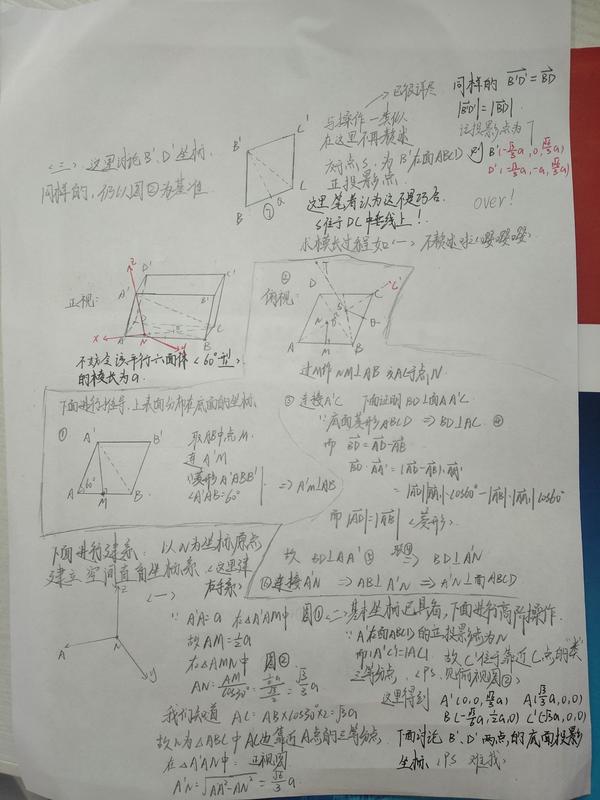 正视:
A'
D'
C'
B'
A
N
B
x
y
z
不妨定该平行六面体<60°型>
的棱长为a.
②
俯视:
T
D
C
C'
N
S
θ
A
M
B
过M作NM⊥AB交AC于点N
下面进行推导,上表面分布在底面的坐标.
①
A'
B'
60°
A
M
B
取AB中点M.
连A'M
∵菱形A'ABB'
∠A'AB=60°
⇒A'M⊥AB
③连接A'C 下面证明BD⊥面AA'C
∵底面菱形ABCD ⇒BD⊥AC ④
而 BD=AD-AB
BD·AA'=(AD-AB)·AA'
=|AD||AA'|·cos60°-|AB|·|AA'|cos60°
而|AD|=|AB|<菱形>.
故 BD⊥AA' ⇒ BD⊥A'N
连接A'N ⇒AB⊥A'N ⇒A'N⊥面ABCD
下面进行建系:以N为坐标原点
建立空间直角坐标系<这里建
右手系>
z
A
N
y
<一>
∵A'A=a 在△A'AM中 图①
故AM=½a
在△AMN中 图②
AN=AM/cos30°=½a/(√3/2)=√3/3 a
我们知道 AC=AB×cos30°×2=√3a
故N为△ABC中AC边靠近A点的三等分点
在△A'AN中 正视图
A'N=√(AA'²-AN²)=√6/3 a
<二>基本坐标已具备,下面进行高阶操作.
∵A'在面ABCD的正投影点为N
而|A'C'|=|AC| 故C'位于靠近C点的"类"
三等分点.<PS.见俯视图②>
这里得到 A'(0,0,√6/3a) A(√3/3a,0,0)
B(-√3/6a,½a,0) C'(-√3a,0,0)
下面讨论B'.D'两点的底面投影
坐标.<PS 难哉>
<三>.这里讨论B'.D'坐标.
同样的,仍以图②为基准
B'
C'
C
B
a
⑦
与操作一类似
已很详尽
在这里不再赘述
对点S,为B'在面ABCD
正投影点.
这里笔者认为这不是巧合.
S位于DC中垂线上!
求模长过程如<一>不赘述啦<嘤嘤嘤>
同样的 B'D'=BD
|B'D'|=|BD|.
该投影点为T
则B'(-√3/2a,0,√6/3a)
D'(-√3/2a,-a,√6/3a)
over!